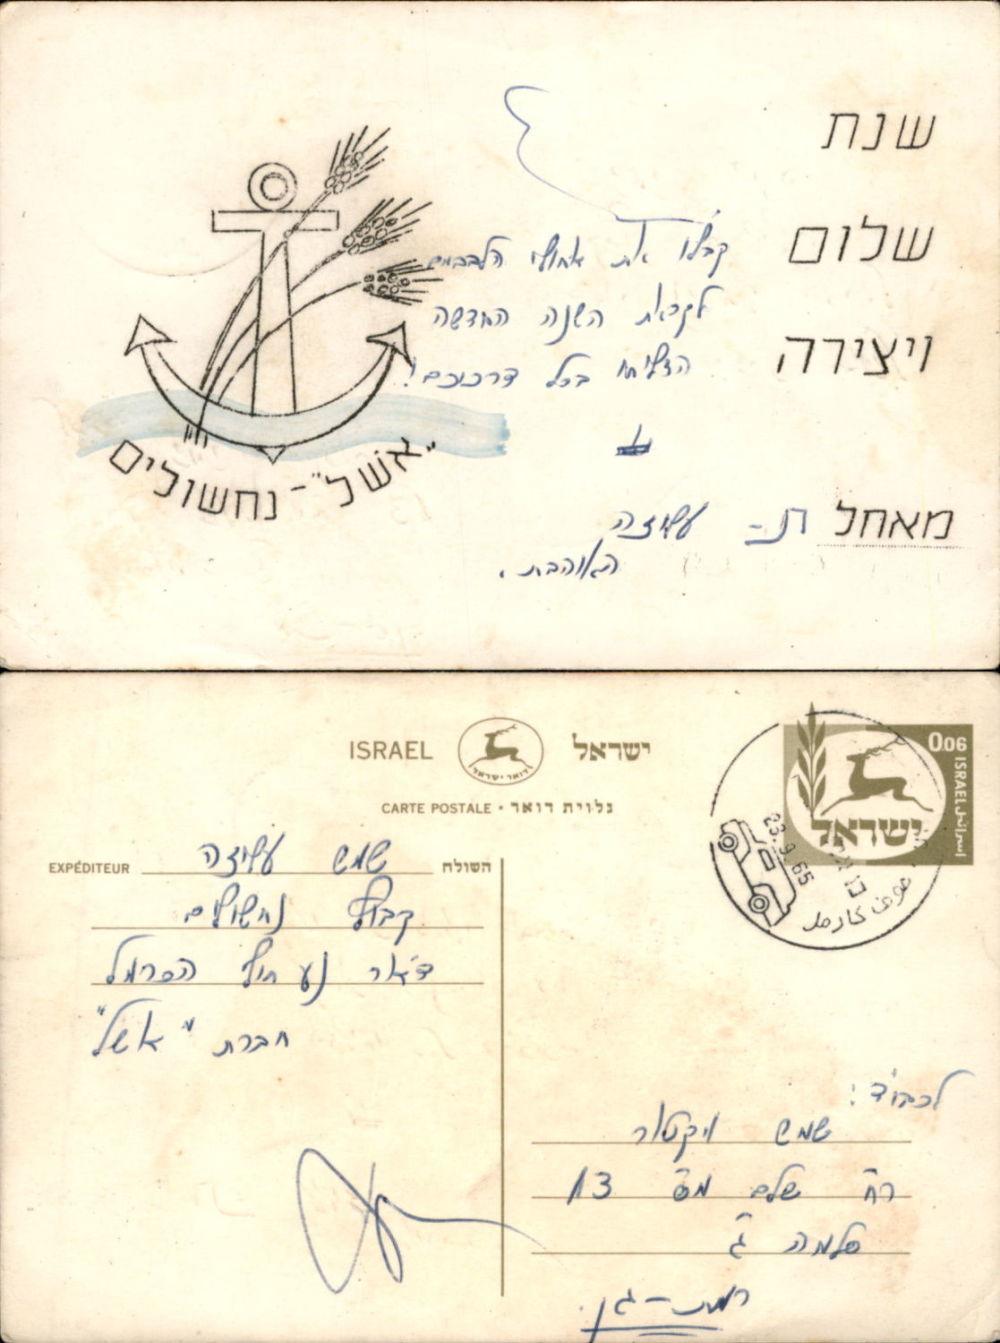 שנת
שלום
ויצירה
קבלו את אחולי הלבבים
לקראת השנה החדשה
הצליחו בכל דרכיכם!
מאחל
בת - עליזה
האוהבת.
"אשל" - נחשולים
ISRAEL ישראל
דואר ישראל
CARTE POSTALE · גלוית דואר
EXPÉDITEUR שמש עליזה השולח
קבוץ נחשולים
ד.נ חוף הכרמל
חברת "אשל"
0.06
ISRAEL اسرائيل
ישראל
23.9.65
חוף כרמל
לכבוד:
שמש ויקטור
רח' שלם מס' 13
סלמה ג'
רמת-גן.